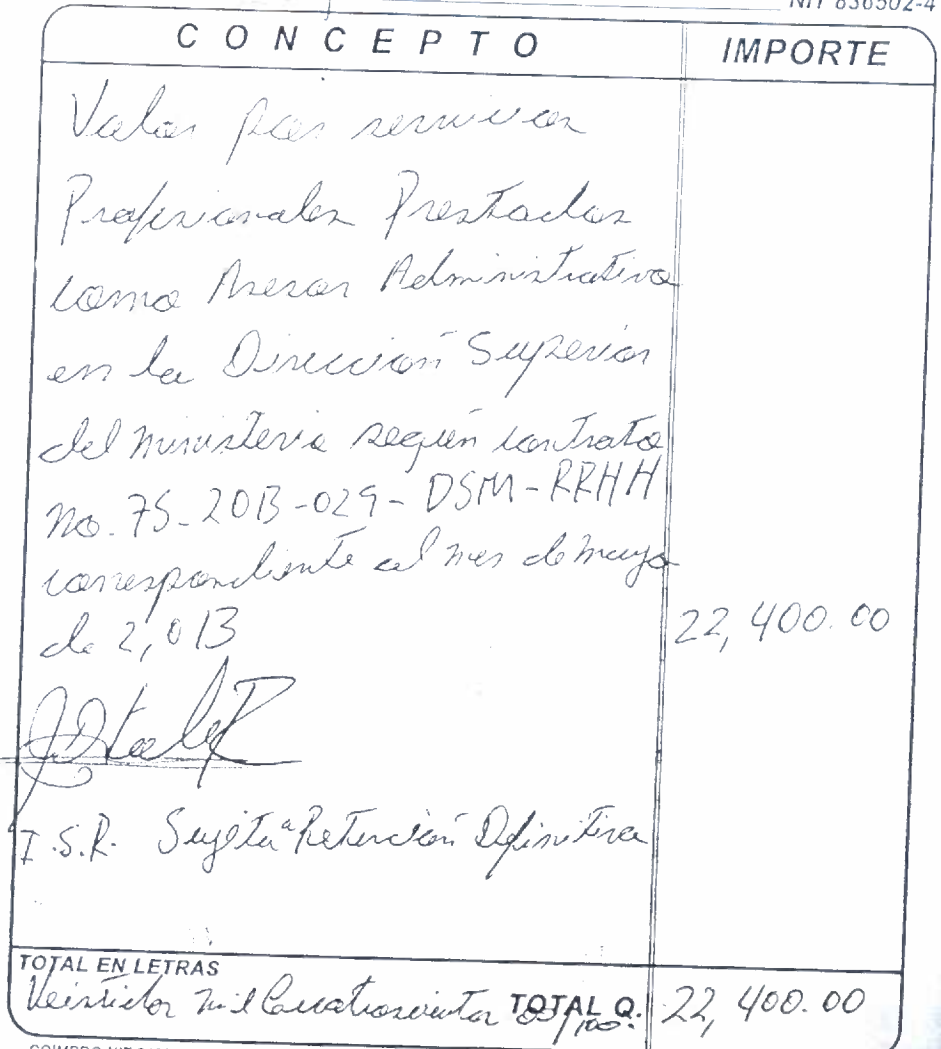 NIT 836502-4
CONCEPTO IMPORTE
Valor por servicios
Profesionales Prestados
como Asesor Administrativo
en la Dirección Superior
del ministerio según contrato
No. 75-2013-029-DSM-RRHH
correspondiente al mes de mayo
de 2,013 22,400.00
I.S.R. Sujeto a Retención Definitiva
TOTAL EN LETRAS
Veintidos mil Cuatroscientos 00/100. TOTAL Q. 22,400.00